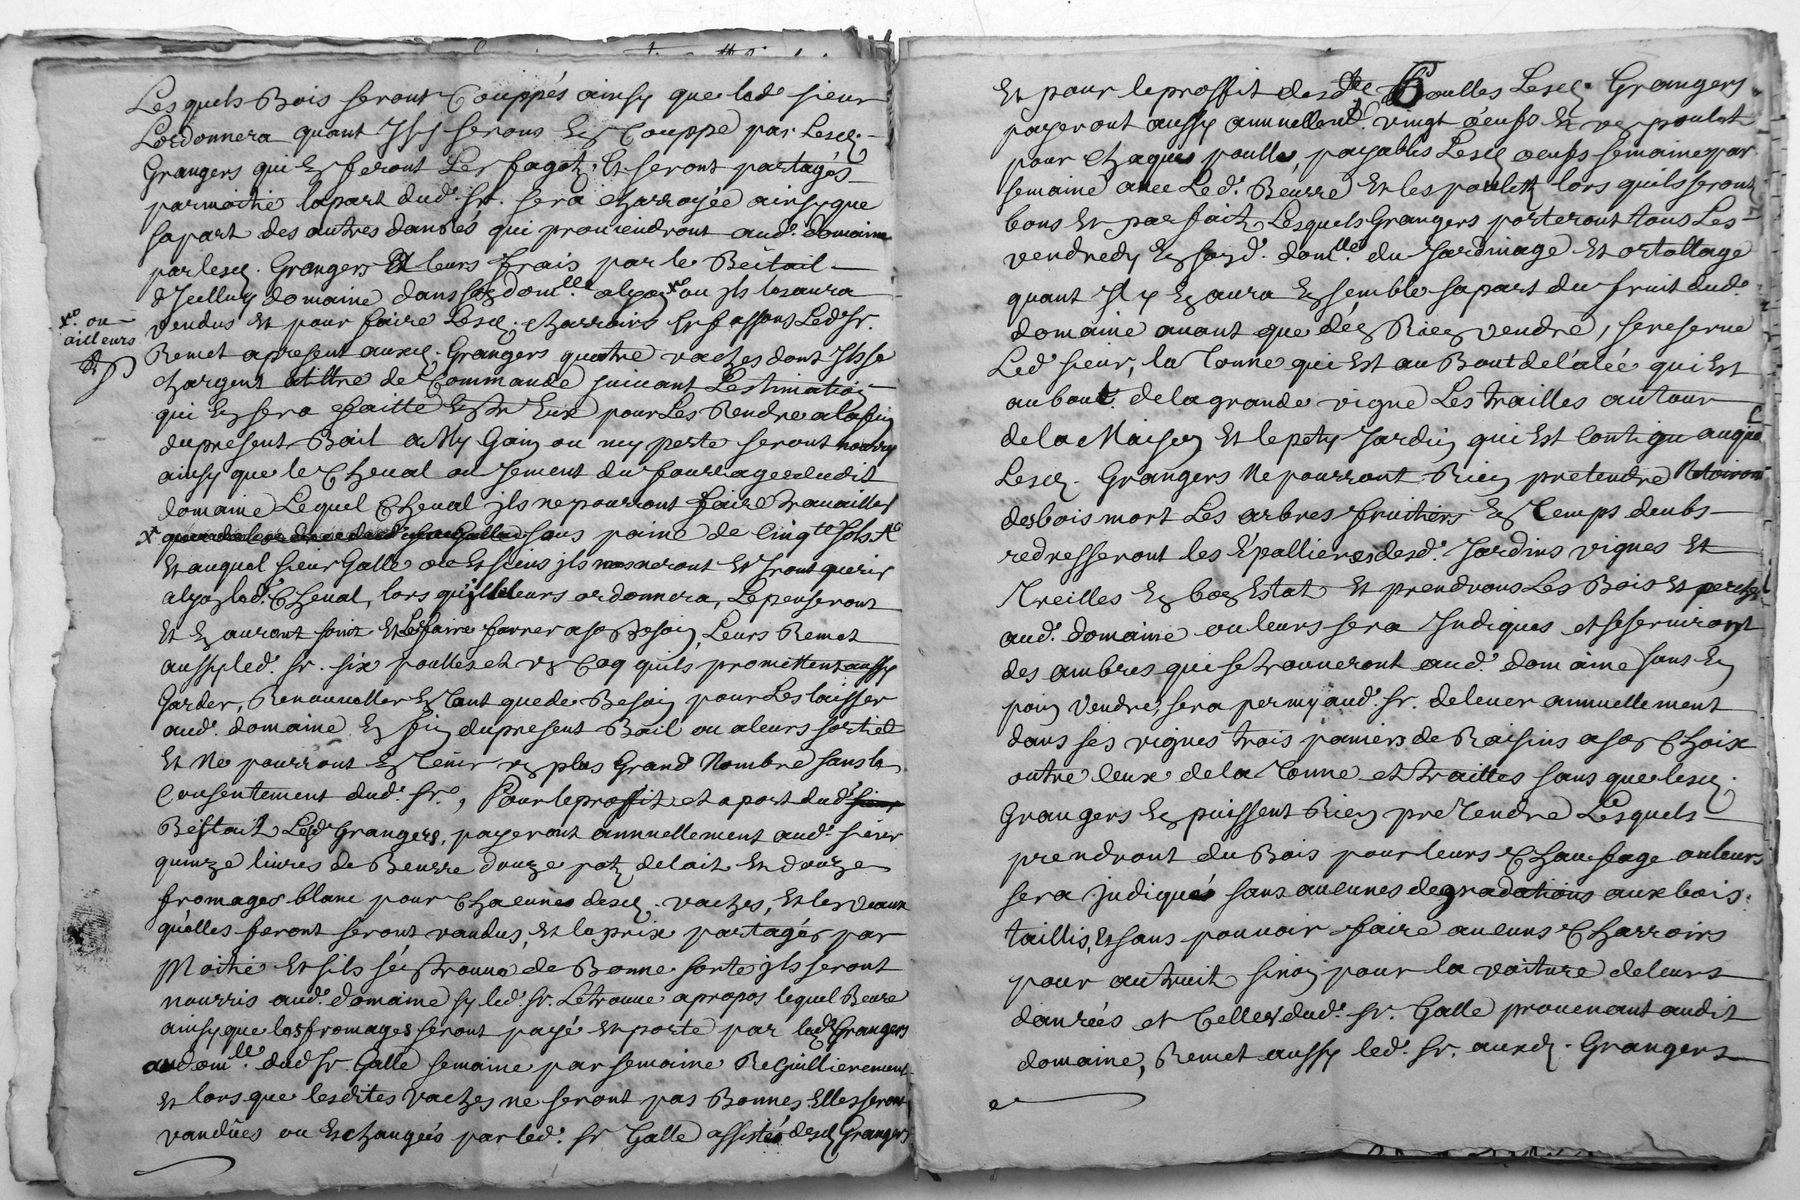 Lesquels Bois seront Couppés ainsy que led. sieur
Lordonnera quant Ils serons Couppé par Lesd.
Grangers qui feront Les fagotz, Et seront partagés
par moitie lapart dud. Sr. sera charroyée ainsy que
sapart des autres danrés qui prouiendront aud. domaine
par lesd. Grangers leurs frais par le Béitail
domaine dans sondomlle. alyon ou jls lesaura
vendus Et pour faire Lesd. charroirs Led. Sr.
xo. ou
ailleurs
Remet apresent auxd. Grangers quatre vaches dont Jlsse
chargent atiltre de Commande suiuant Lestimation
qui En sera ffaitte Entr Eux pour Les Rendre a lafin
dupresent Bail a Ny Gain ou ny perte seront nourry
ainsy que le Cheual ou Jement du fourrage dudit
domaine Lequel Cheual jls ne pourront faire trauailler
x sous paine de Cinqte. sols
Et auquel sieur Galle jls meneront Et Jront querir
alyon led. Cheual, lors quil leurs ordonnera, Le penseront
Et En auront soint Et Lefaire farrer a son Besoin, Leurs Remet
aussy led. sr. six poulles et vn Coq quils promettent aussy
Garder, Renouueller En tant que de Besoin pour Les laisser
aud. domaine En fin dupresent Bail ou aleurs sortie
Et Ne pourront En Tenir vn plus Grand Nombre sans le
Consentement dud. sr., Pour le proffit et aport dud.
Béstail Lesd. Grangers, payeront annuellement aud. sieur
quinze liures de Beurre douze potz delait Et douze
fromages blanc pour Chacunes desd. vaches, Et les veaux
quelles feront seront vandus, Et le prix partagés par
Moitie Et sils sen trouue de Bonne sorte jls seront
nourris aud. domaine sy led. sr. Le trouue apropos lequel Beure
ainsy que les fromages seront payé Et porte par lesd. Grangers
au domlle. dud Sr. Galle semaine par semaine Reguillierement
Et lors que lesdites vaches ne seront pas Bonnes Elles seront
vandûes ou Eschangeés par led. Sr Galle assisté desd Grangers
Et pour le proffit desdte. 6 Poulles Lesd. Grangers
payeront aussy annuellent. vingt oeufs Et vn poulet
pour chaques poulle, payables Lesd oeufs semaine par
semaine auec Led. Beurre Et les pouletz lors quils seront
bons Et parfaitz Lesquels Grangers porteront tous Les
vendredy En sond. domlle. du Jardinage Et ortollage
quant Jl y En aura Ensemble sapart du fruit dud.
domaine auant que den Rien vendre, se reserue
Led sieur, la Tonne qui Est au Bout de l'alée qui Est
au bout. de la grande vigne Les trailles autour
de la Maison Et le pety Jardin qui Est Contigu auquel
Lesd. Grangers Ne pourront Rien pretendre
desbois mort Les arbres fruitiers En Temps deubs
redresseront les Epallieres desd. Jardins vignes Et
Treilles En bon Estat Et prendrons Les Bois Et perches
aud. domaine ou leurs sera Indiques et se seruiront
des ambres qui se trouueront aud. domaine sans En
poin Vendre, sera permy aud. sr. deleuer annuellement
dans ses vignes trois paniers de Raisins a son Choix
outre Ceux de la Tonne et trailles sans que lesd.
Grangers En puissent Rien preTendre Lesquels
prendront du Bois pour leurs Chaufage ou leurs
sera jndiqués sans aucunes degradations aux bois
taillis, Et sans pouuoir faire aucuns Charroirs
pour autruit sinon pour la voiture deleurs
danrées et Celles dud. sr. Galle prouenant audit
domaine, Remet aussy led. sr. auxd. Grangers